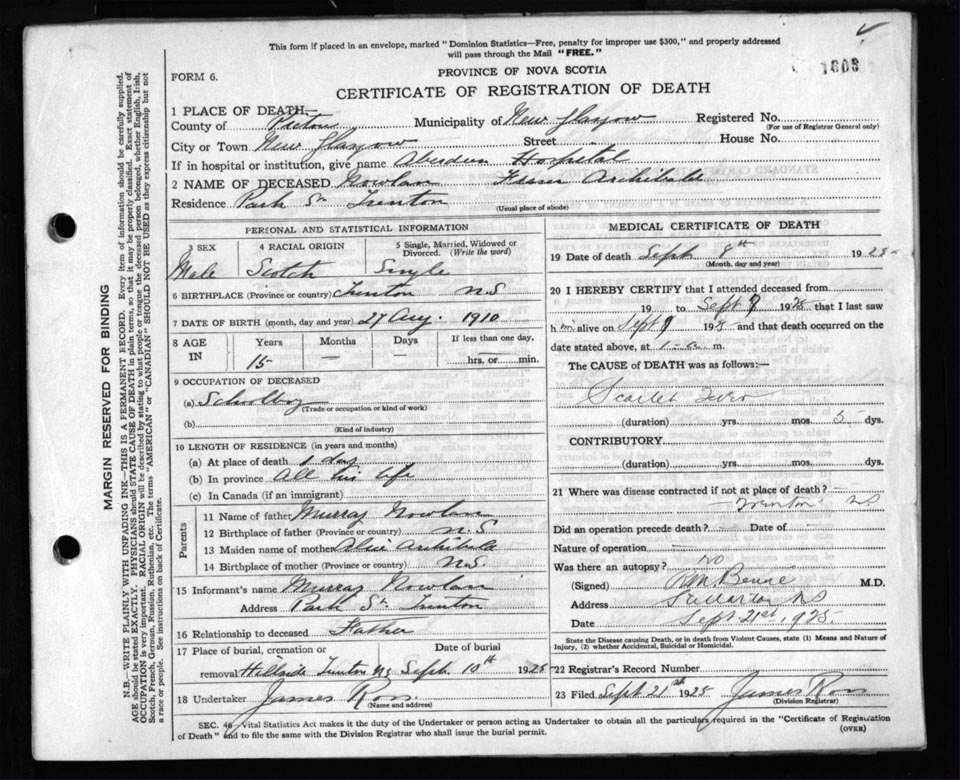 This form if placed in an envelope, marked "Dominion Statistics—Free, penalty for improper use $300," and properly addressed
will pass through the Mail "FREE."
1808
FORM 6.
PROVINCE OF NOVA SCOTIA
CERTIFICATE OF REGISTRATION OF DEATH
1 PLACE OF DEATH—
County of Pictou Municipality of New Glasgow Registered No.
(For use of Registrar General only)
City or Town New Glasgow Street House No.
If in hospital or institution, give name Aberdeen Hospital
2 NAME OF DECEASED Nowlan Archibald
Residence Park St Trenton
(Usual place of abode)
PERSONAL AND STATISTICAL INFORMATION
3 SEX 4 RACIAL ORIGIN 5 Single, Married, Widowed or Divorced. (Write the word)
Male Scotch Single
6 BIRTHPLACE (Province or country) Trenton N.S
7 DATE OF BIRTH (month, day and year) 27 Aug. 1910
8 AGE IN Years Months Days If less than one day,
15 — — hrs. or min.
9 OCCUPATION OF DECEASED
(a) Schoolboy
(Trade or occupation or kind of work)
(b)
(Kind of industry)
10 LENGTH OF RESIDENCE (in years and months)
(a) At place of death 1 day
(b) In province All his life
(c) In Canada (if an immigrant)
Parents
11 Name of father Murray Nowlan
12 Birthplace of father (Province or country) N.S
13 Maiden name of mother Archibald
14 Birthplace of mother (Province or country) N.S.
15 Informant's name Murray Nowlan
Address Park St. Trenton
16 Relationship to deceased Father
17 Place of burial, cremation or removal Date of burial
Hillside Trenton NS Sept. 10th 1925
18 Undertaker James Ross
(Name and address)
MEDICAL CERTIFICATE OF DEATH
19 Date of death Sept. 8th 1925
(Month, day and year)
20 I HEREBY CERTIFY that I attended deceased from
19 to Sept 1925 that I last saw
him alive on Sept 192 and that death occurred on the
date stated above, at 1-a m.
The CAUSE of DEATH was as follows:—
Scarlet Fever
(duration) yrs. mos. 5 dys.
CONTRIBUTORY
(duration) yrs. mos. dys.
21 Where was disease contracted if not at place of death?
Trenton NS
Did an operation precede death? — Date of —
Nature of operation —
Was there an autopsy? no
(Signed) M.D.
Address Stellarton NS
Date Sept. 21st 1925
State the Disease causing Death, or in death from Violent Causes, state (1) Means and Nature of
Injury, (2) whether Accidental, Suicidal or Homicidal.
22 Registrar's Record Number
23 Filed Sept 21st 1925 James Ross
(Division Registrar)
SEC. 46, Vital Statistics Act makes it the duty of the Undertaker or person acting as Undertaker to obtain all the particulars required in the "Certificate of Registration
of Death" and to file the same with the Division Registrar who shall issue the burial permit.
(OVER)
MARGIN RESERVED FOR BINDING
N.B.—WRITE PLAINLY WITH UNFADING INK—THIS IS A PERMANENT RECORD. Every item of information should be carefully supplied.
AGE should be stated EXACTLY. PHYSICIANS should STATE CAUSE OF DEATH in plain terms, so that it may be properly classified. Exact statement of
OCCUPATION is very important. RACIAL ORIGIN will be described by stating to what people or tongue the deceased person belonged, whether English, Irish,
Scotch, French, German, Russian, Ruthenian, etc. The terms "AMERICAN" or "CANADIAN" SHOULD NOT BE USED as they express citizenship but not
a race or people. See instructions on back of Certificate.